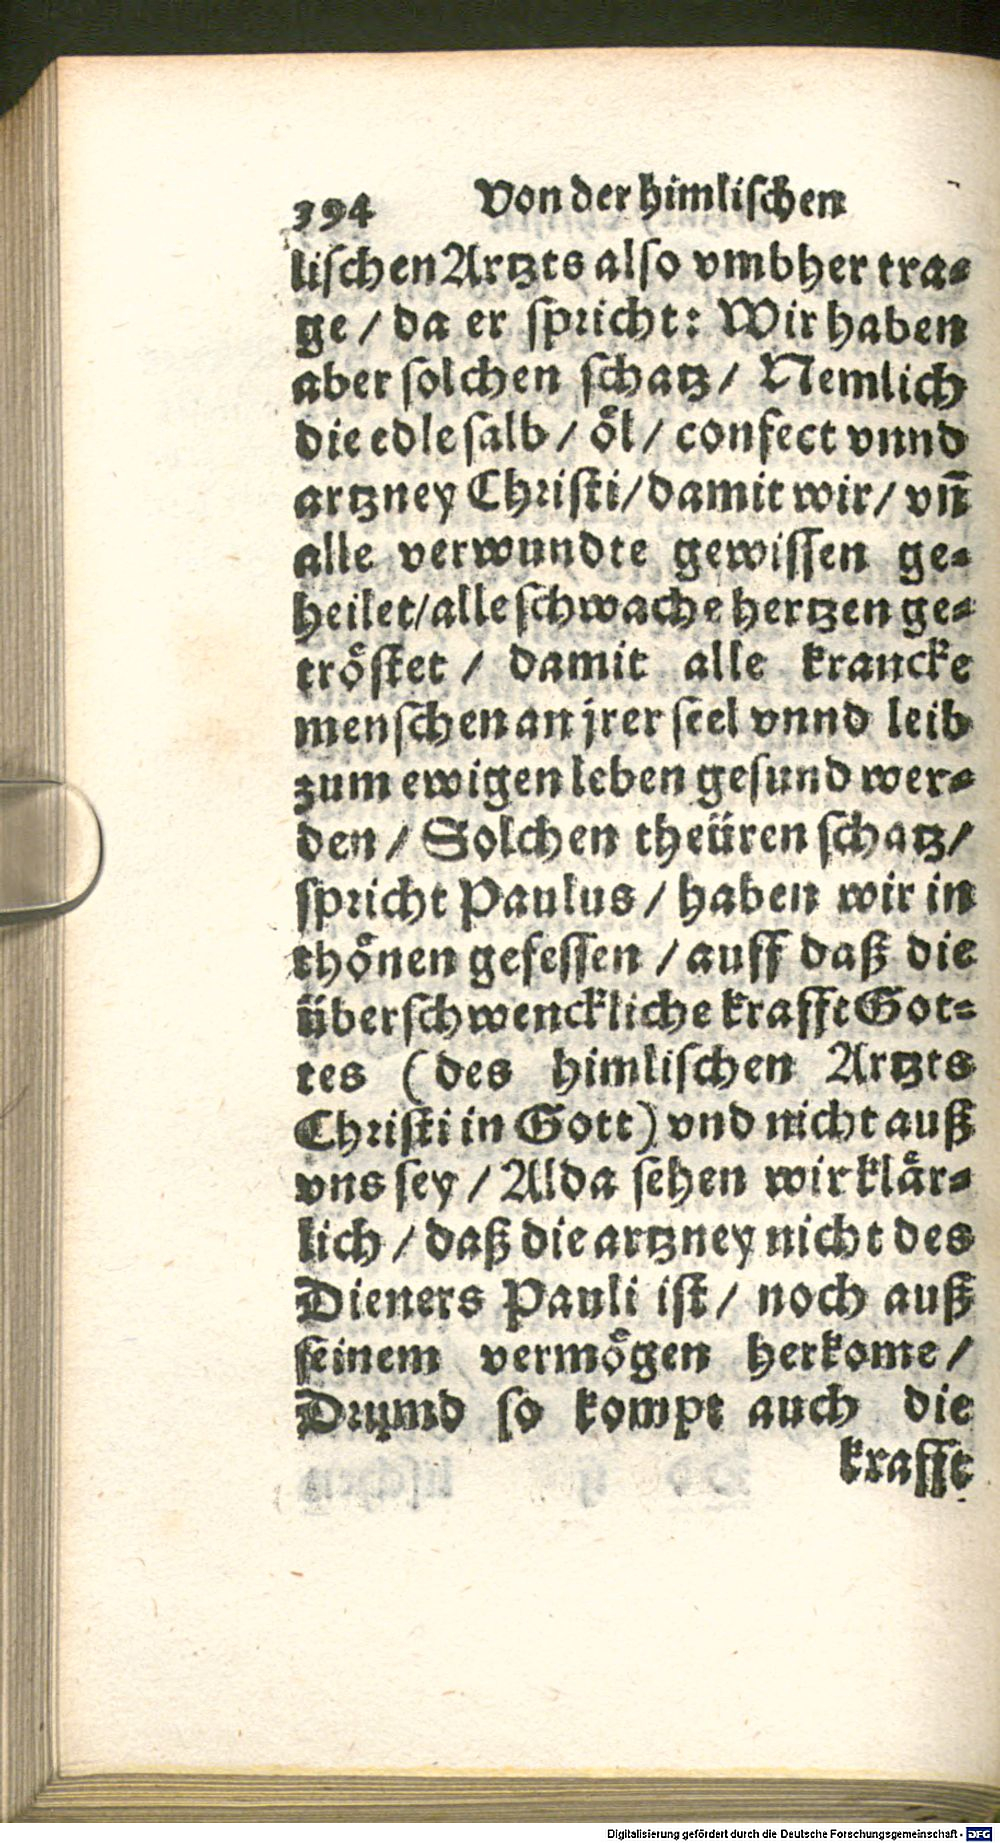 394 Von der himlischen
lischen Artzts also vmbher tra-
ge / da er spricht: Wir haben
aber solchen schatz / Nemlich
die edle salb / öl / confect vnnd
artzney Christi / damit wir / vn̄
alle verwundte gewissen ge-
heilet / alle schwache hertzen ge-
tröstet / damit alle krancke
menschen an jrer seel vnnd leib
zum ewigen leben gesund wer-
den / Solchen theüren schatz /
spricht Paulus / haben wir in
thönen gefessen / auff daß die
überschwenckliche krafft Got-
tes (des himlischen Artzts
Christi in Gott) vnd nicht auß
vns sey / Alda sehen wir klär-
lich / daß die artzney nicht des
Dieners Pauli ist / noch auß
seinem vermögen herkome /
Drumb so kompt auch die
krafft
Digitalisierung gefördert durch die Deutsche Forschungsgemeinschaft - DFG